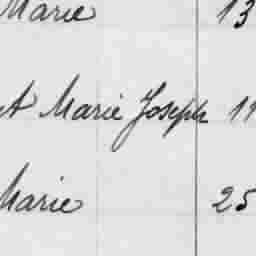 Marie 13
Marie Joseph 11
Marie 25